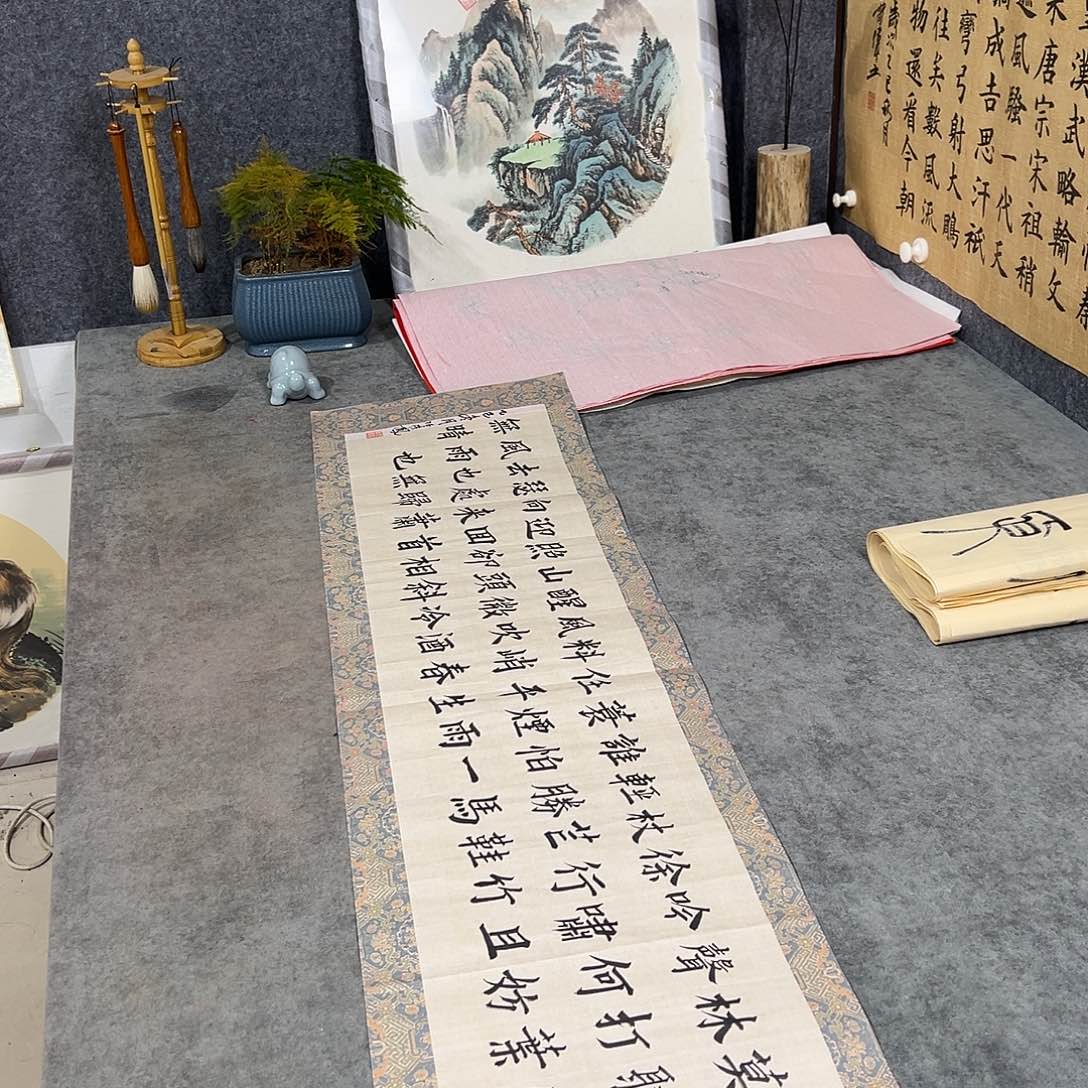 莫聽
林打葉
聲何妨
吟嘯且
徐行竹
杖芒鞋
輕勝馬
誰怕一
蓑煙雨
任平生
料峭春
風吹酒
醒微冷
山頭斜
照卻相
迎回首
向來蕭
瑟處歸
去也無
風雨也
無晴
乙巳
漢武略輸文
采唐宗宋祖稍
風騷一代天
成吉思汗祇
彎弓射大鵰
往矣數風流
物還看今朝
乙巳秋月